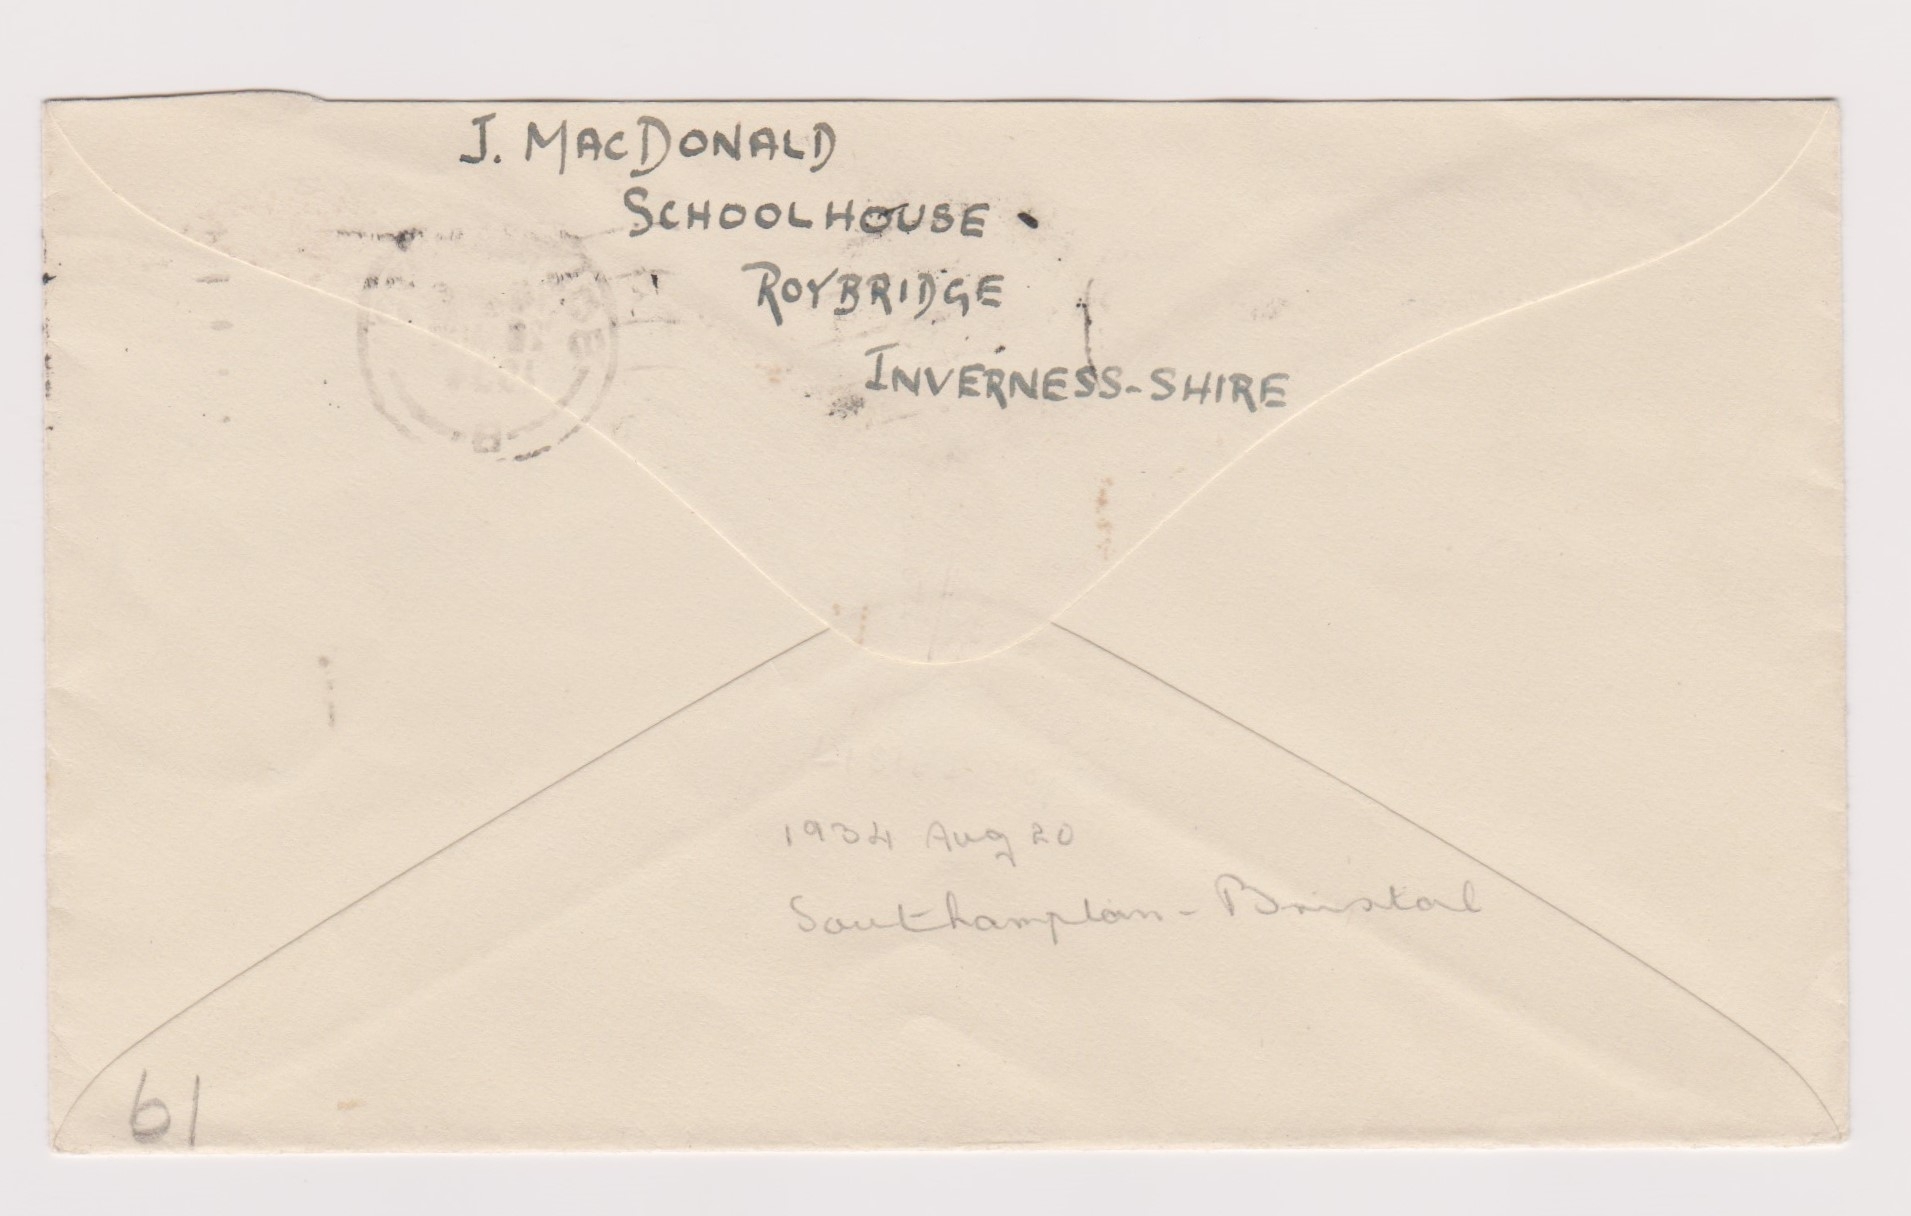 J. MACDONALD
SCHOOLHOUSE
ROYBRIDGE
INVERNESS-SHIRE
1934 Aug 20
Southampton - Bristol
61